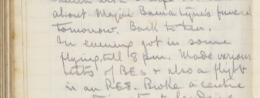 about Major Bannatyne's funeral
tomorrow. Back to tea.
In evening got in some
flying, till 8 pm. Made various
tests of BEs & also a flight
in an RE8. Broke a centre